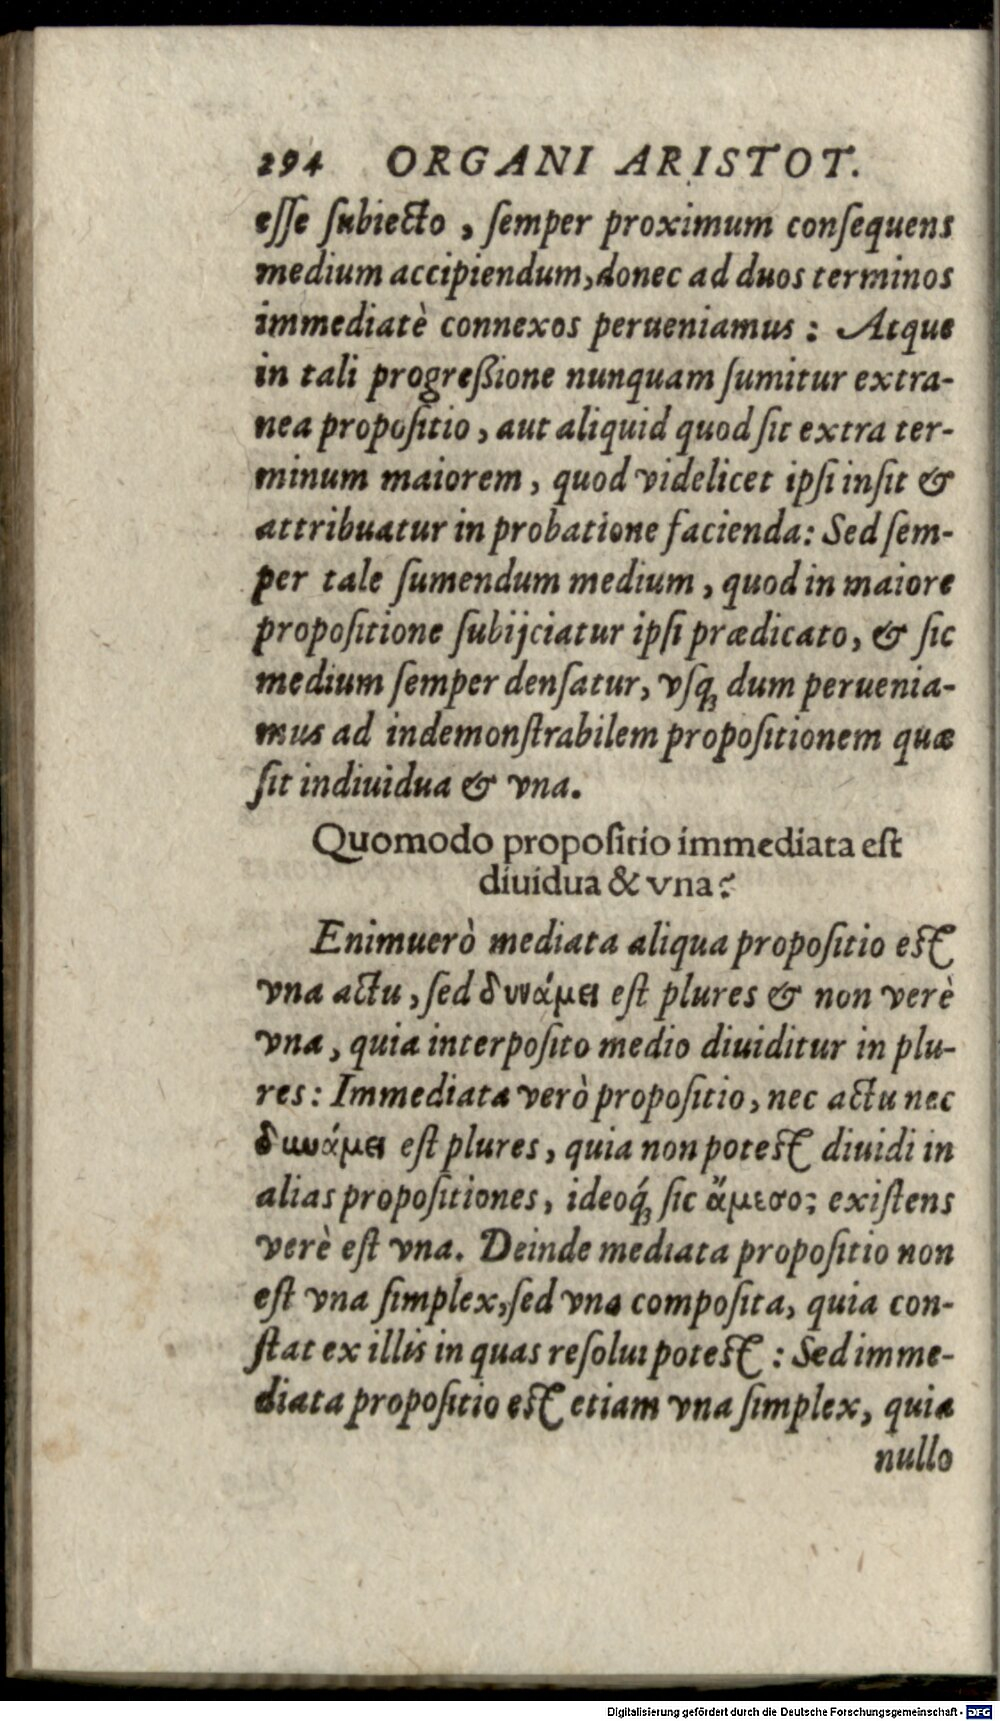 294 ORGANI ARISTOT.
esse subiecto, semper proximum consequens
medium accipiendum, donec ad duos terminos
immediatè connexos perueniamus: Atque
in tali progreßione nunquam sumitur extra-
nea propositio, aut aliquid quod sit extra ter-
minum maiorem, quod videlicet ipsi insit &
attribuatur in probatione facienda: Sed sem-
per tale sumendum medium, quod in maiore
propositione subijciatur ipsi prædicato, & sic
medium semper densatur, vsq; dum peruenia-
mus ad indemonstrabilem propositionem quæ
sit indiuidua & vna.
Quomodo propositio immediata est
diuidua & vna?
Enimuerò mediata aliqua propositio est
vna actu, sed δυνάμει est plures & non verè
vna, quia interposito medio diuiditur in plu-
res: Immediata verò propositio, nec actu nec
δυνάμει est plures, quia non potest diuidi in
alias propositiones, ideoq́; sic ἄμεσος existens
verè est vna. Deinde mediata propositio non
est vna simplex, sed vna composita, quia con-
stat ex illis in quas resolui potest: Sed imme-
diata propositio est etiam vna simplex, quia
nullo
Digitalisierung gefördert durch die Deutsche Forschungsgemeinschaft - DFG